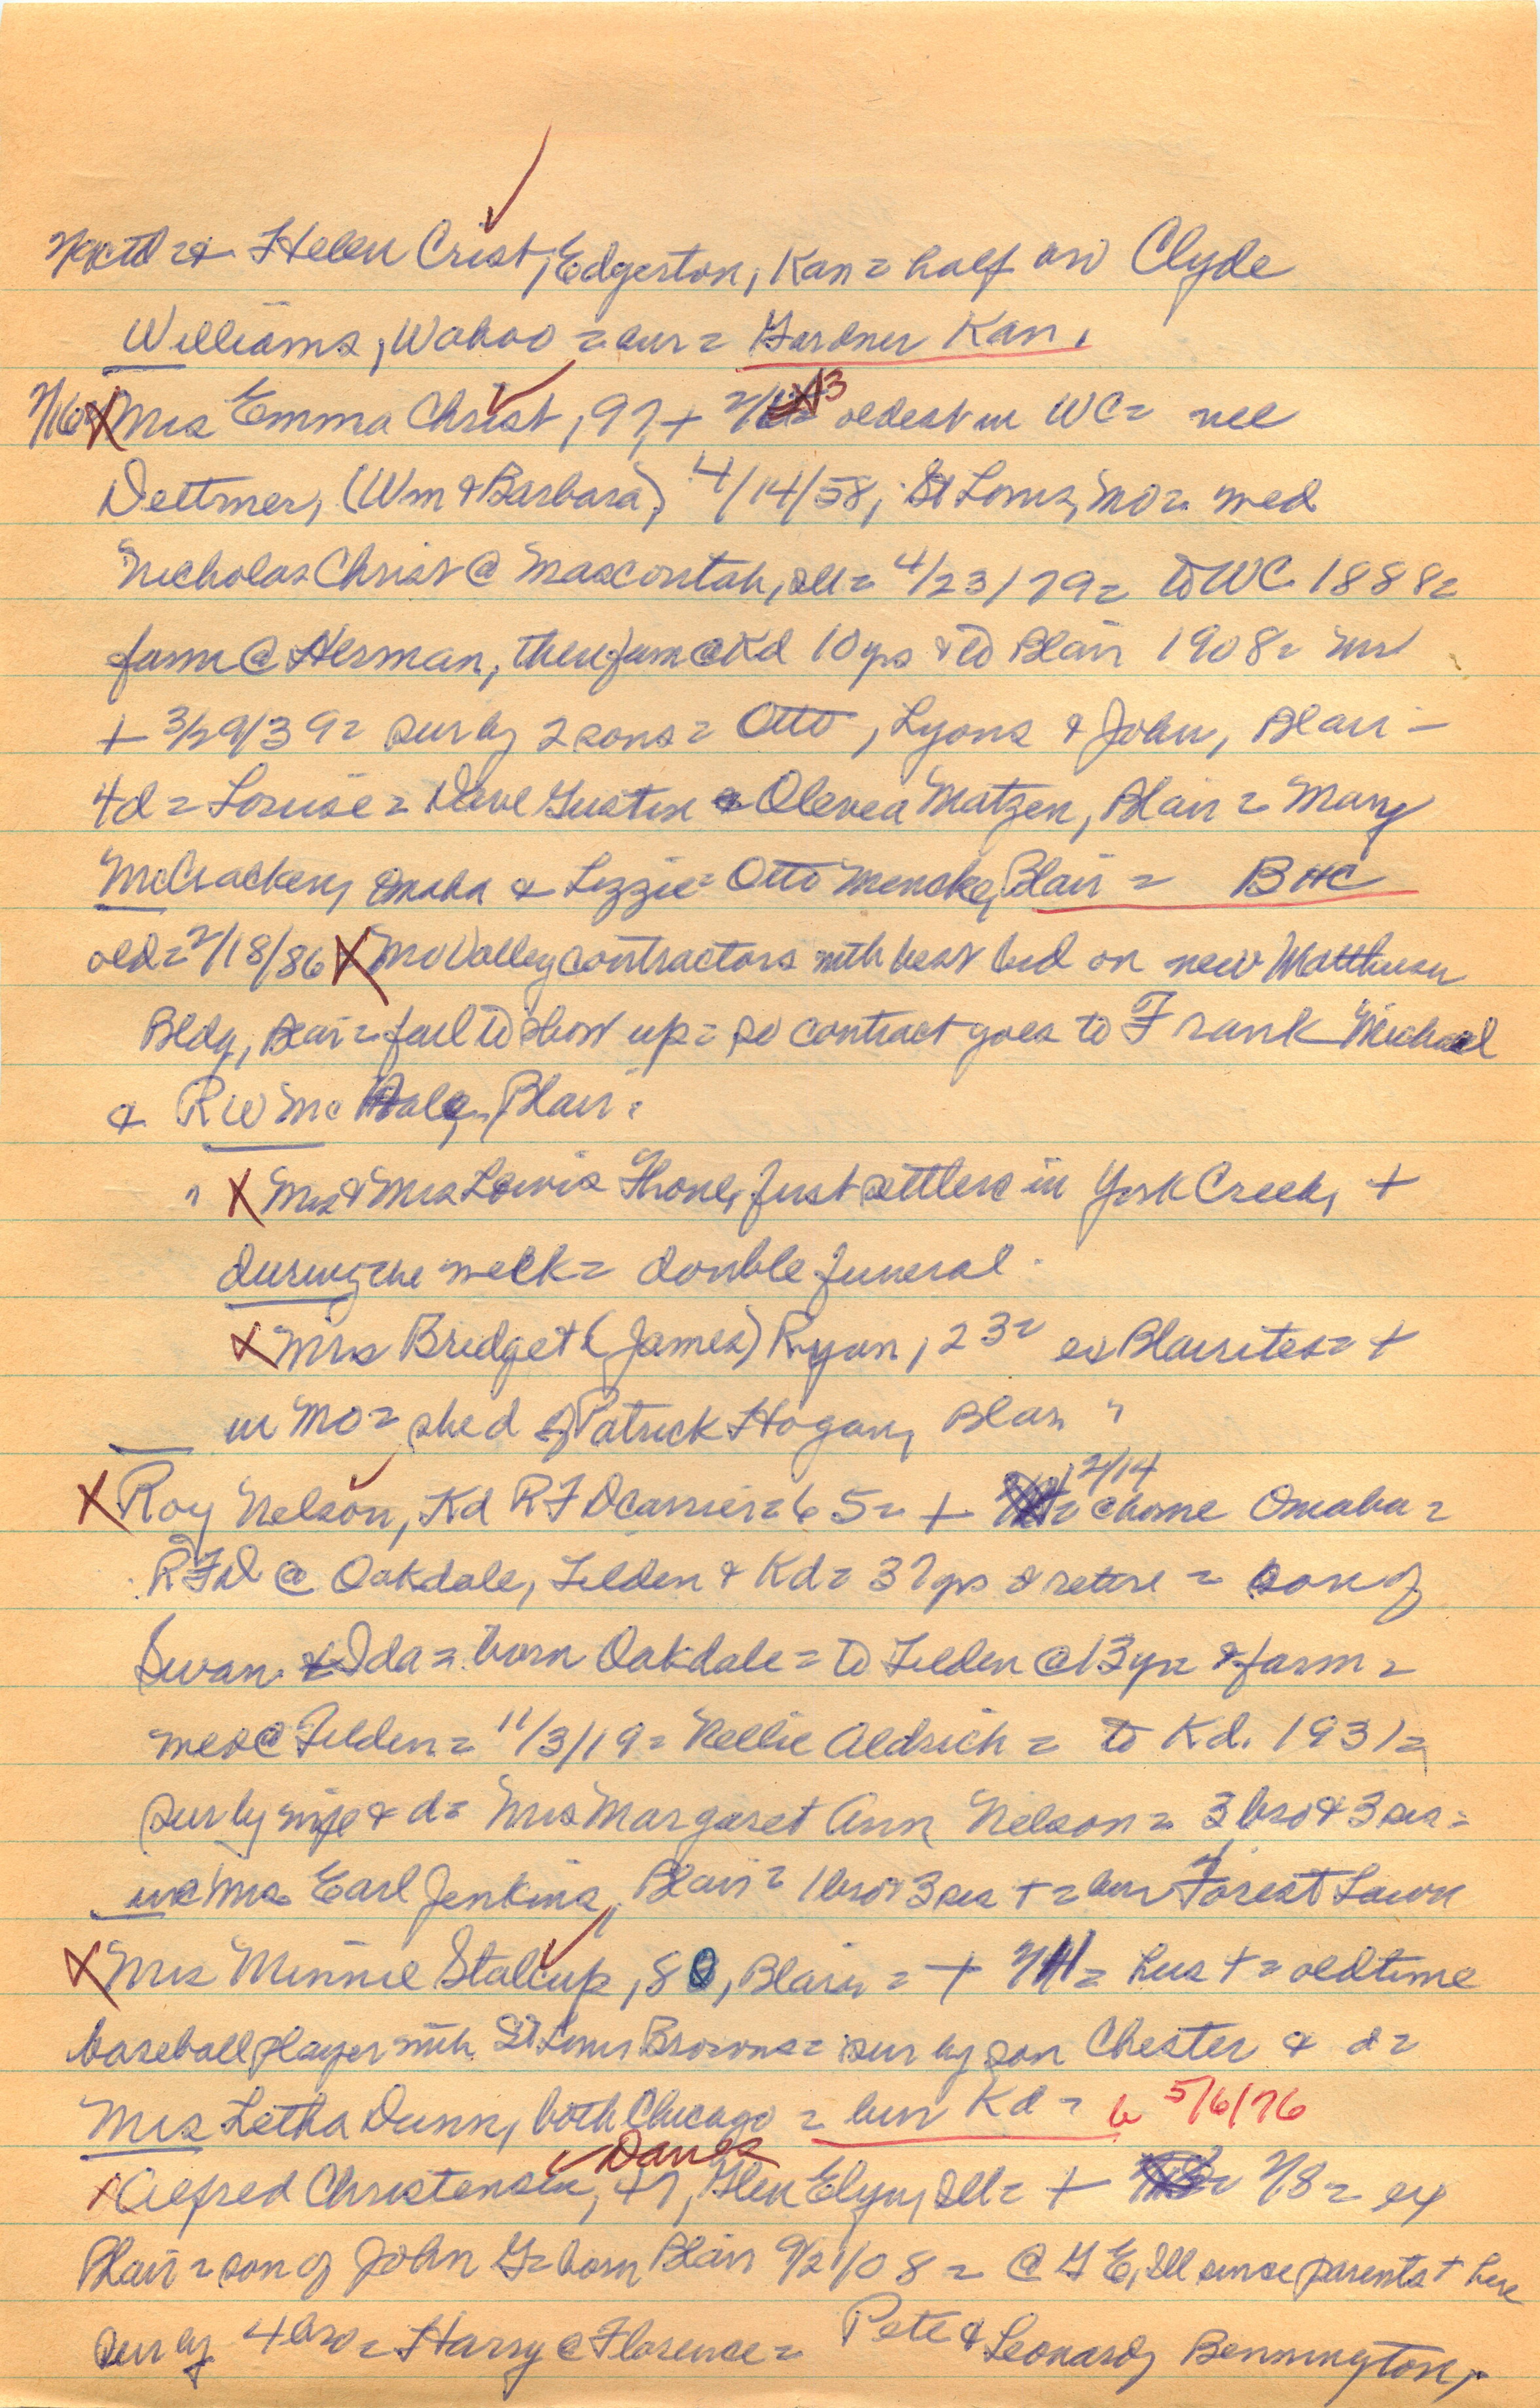 Helen Crist, Edgerton, Kan = half Clyde
Williams, Wahoo = bur = Gardner Kan.
2/16 X Mrs Emma Christ, 97, + 2/13 oldest in WC = nee
Dettmer, (Wm & Barbara) 4/14/58, St Louis, Mo = wed
Nicholas Christ @ Mascoutah, Ill = 4/23/79 = to WC 1888 =
farm @ Herman, then farm @ Kd 10 yrs & to Blair 1908 =
+ 3/29/39 = sur by 2 sons = Otto, Lyons & John, Blair -
4d = Louise = Dave Gustin & Olevea Matzen, Blair = Mary
McCracken, Omaha & Lizzie = Otto Mencke, Blair = BHC
old = 2/18/86 X Mo Valley contractors with best bid on new Matthiesen
Bldg, Blair = fail to show up = so contract goes to Frank Michael
& RW Mc Blair.
" X Mr & Mrs Lewis Thone, first settlers in York Creek, +
during the week = double funeral.
X Mrs Bridget (James) Ryan, 23 = ex Blairites = +
in Mo = she d of Patrick Hogan, Blair "
X Roy Nelson, Kd RFD carrier = 65 = + 2/14 @ home Omaha =
RFD @ Oakdale, Tilden & Kd = 37 yrs & retire = son of
Swan & Ida = born Oakdale = to Tilden @ 13 yrs & farm =
wed @ Tilden = 11/3/19 = Nellie Aldrich = to Kd. 1931 =
sur by wife & d = Mrs Margaret Ann Nelson = 3 bro & 3 sis =
inc Mrs Earl Jenkins, Blair = 1 bro & 3 sis + = bur Forest Lawn
X Mrs Minnie Stalcup, 80, Blair = + 2/11 = hus + = oldtime
baseball player with St Louis Browns = sur by son Chester & d =
Mrs Letha Dunn, both Chicago = bur Kd = b 5/6/76
Danes
X Alfred Christensen, 47, Glen Elyn, Ill = + 2/8 = ex
Blair = son of John G = born Blair 9/21/08 = @ GE, Ill since parents + here
sur by 4 bro = Harry @ Florence = Pete & Leonard, Bennington,